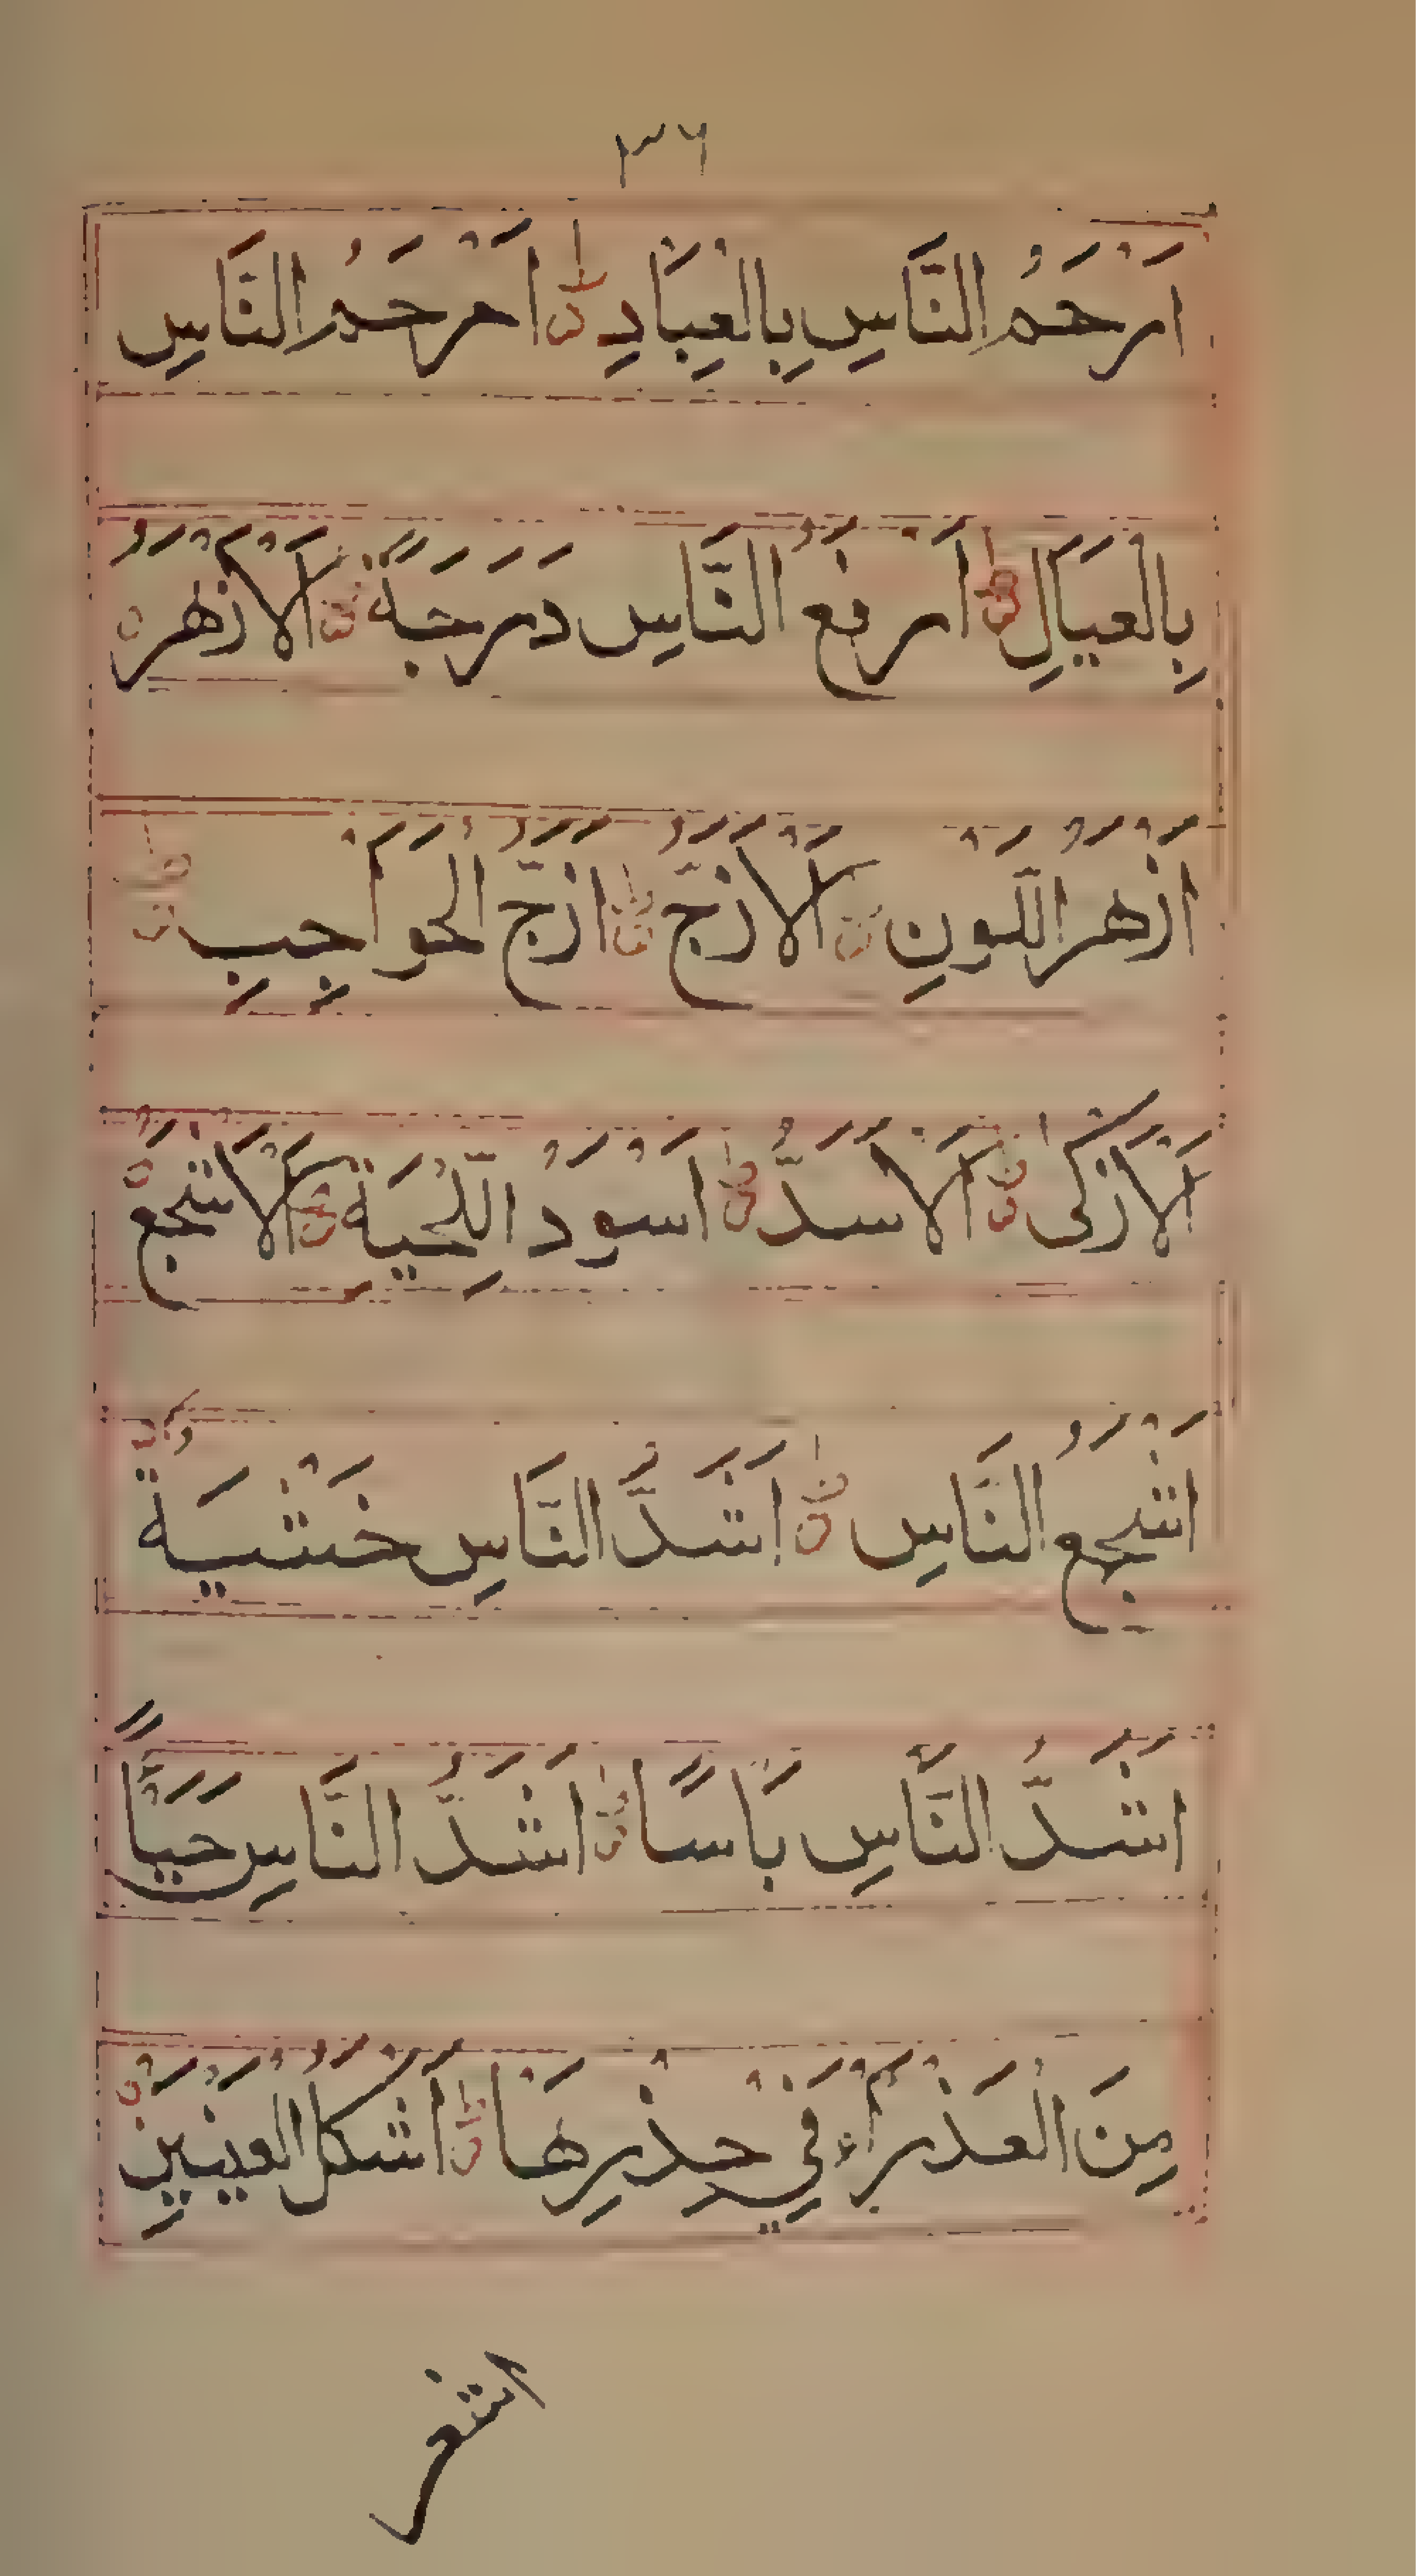 ٣٦
اَرْحَمُ النَّاسِ بِالْعِبَادِ اَرْحَمُ النَّاسِ
بِالْعِيَالِ اَرْفَعُ النَّاسِ دَرَجَةً اَلْاَزْهَرُ
اَزْهَرُ اللَّوْنِ اَلْاَزَجُّ اَزَجُّ الْحَوَاجِبِ
اَلْاَزْكٰى اَلْاَسَدُّ اَسْوَدُ اللِّحْيَةِ اَلْاَشْجَعُ
اَشْجَعُ النَّاسِ اَشَدُّ النَّاسِ خَشْيَةً
اَشَدُّ النَّاسِ بَاْسًا اَشَدُّ النَّاسِ حَيَاً
مِنَ الْعَذْرَآءِ فِيْ خِذْرِهَا اَشْكَلُ الْعَيْنَيْنِ
اشعر